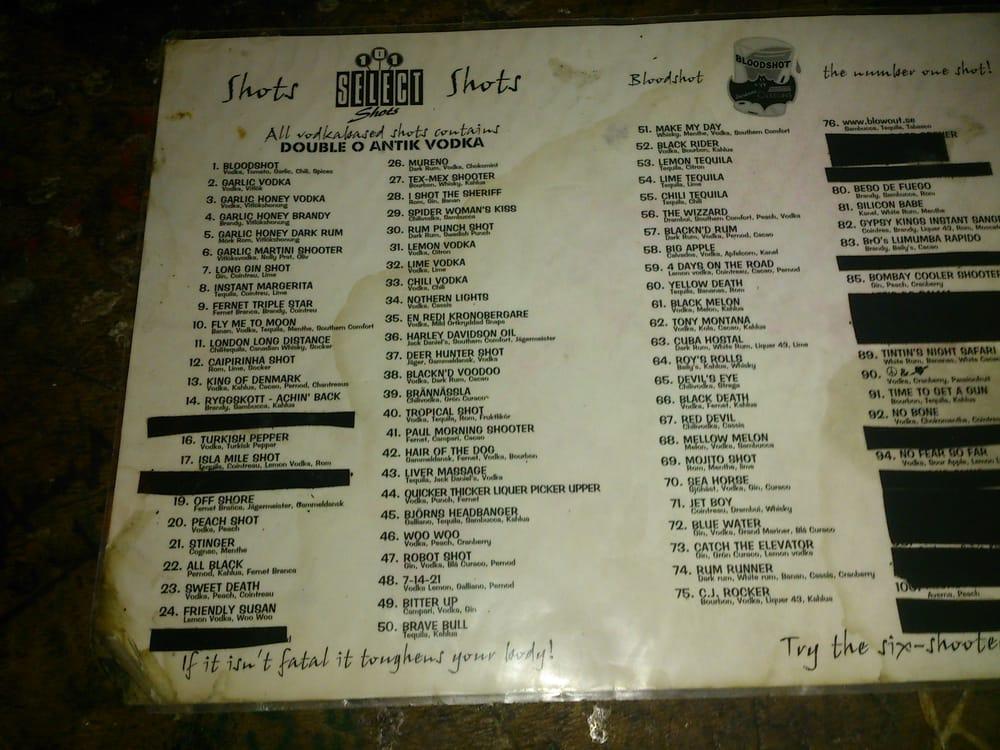 Shots
1 1 1
SELECT
Shots
Shots
All vodkabased shots contains
DOUBLE O ANTIK VODKA
1. BLOODSHOT
Vodka, Tomato, Garlic, Chili, Spices
2. GARLIC VODKA
Vodka, Vitlök
3. GARLIC HONEY VODKA
Vodka, Vitlökshonung
4. GARLIC HONEY BRANDY
Brandy, Vitlökshonung
5. GARLIC HONEY DARK RUM
Mörk Rom, Vitlökshonung
6. GARLIC MARTINI SHOOTER
Vitlöksvodka, Noily Prat, Oliv
7. LONG GIN SHOT
Gin, Cointreu, Lime
8. INSTANT MARGERITA
Tequila, Cointreu, Lime
9. FERNET TRIPLE STAR
Fernet Branca, Brandy, Cointreu
10. FLY ME TO MOON
Banan, Vodka, Tequila, Menthe, Southern Comfort
11. LONDON LONG DISTANCE
Chilitequila, Canadian Whisky, Docker
12. CAIPIRINHA SHOT
Rom, Lime, Docker
13. KING OF DENMARK
Vodka, Kahlua, Cacao, Pernod, Chantreaus
14. RYGGSKOTT - ACHIN' BACK
Brandy, Sambucca, Kahlua
16. TURKISH PEPPER
Vodka, Turkisk Peppar
17. ISLA MILE SHOT
Tequila, Cointreau, Lemon Vodka, Rom
19. OFF SHORE
Fernet Branca, Jägermeister, Gammeldansk
20. PEACH SHOT
Vodka, Peach
21. STINGER
Cognac, Menthe
22. ALL BLACK
Pernod, Kahlua, Fernet Branca
23. SWEET DEATH
Vodka, Peach, Cointreau
24. FRIENDLY SUSAN
Lemon Vodka, Woo Woo
26. MURENO
Dark Rum, Vodka, Chokomint
27. TEX-MEX SHOOTER
Bourbon, Whisky, Kahlua
28. I SHOT THE SHERIFF
Rom, Gin, Banan
29. SPIDER WOMAN'S KISS
Chilivodka, Sambucca
30. RUM PUNCH SHOT
Dark Rum, Swedish Punch
31. LEMON VODKA
Vodka, Citron
32. LIME VODKA
Vodka, Lime
33. CHILI VODKA
Vodka, Chili
34. NOTHERN LIGHTS
Vodka, Cassis
35. EN REDI KRONOBERGARE
Vodka, Mild Örtkryddad Snaps
36. HARLEY DAVIDSON OIL
Jack Daniel's, Southern Comfort, Jägermeister
37. DEER HUNTER SHOT
Jäger, Gammeldansk, Vodka
38. BLACKN'D VOODOO
Vodka, Dark Rum, Cacao
39. BRÄNNÄSSLA
Chilivodka, Grön Curacao
40. TROPICAL SHOT
Vodka, Tequila, Rom, Fruktlikör
41. PAUL MORNING SHOOTER
Fernet, Campari, Cacao
42. HAIR OF THE DOG
Gammeldansk, Fernet, Vodka, Bourbon
43. LIVER MASSAGE
Tequila, Jack Daniel's, Vodka
44. QUICKER THICKER LIQUER PICKER UPPER
Vodka, Punch, Fernet
45. BJÖRNS HEADBANGER
Galliano, Tequila, Sambucca, Kahlua
46. WOO WOO
Vodka, Peach, Cranberry
47. ROBOT SHOT
Gin, Vodka, Blå Curaco, Pernod
48. 7-14-21
Vodka Lemon, Galliano, Pernod
49. BITTER UP
Campari, Vodka, Gin
50. BRAVE BULL
Tequila, Kahlua
If it isn't fatal it toughens your body!
Bloodshot
BLOODSHOT
the number one shot!
51. MAKE MY DAY
Whisky, Menthe, Vodka, Southern Comfort
52. BLACK RIDER
Vodka, Bourbon, Kahlua
53. LEMON TEQUILA
Tequila, Citron
54. LIME TEQUILA
Tequila, Lime
55. CHILI TEQUILA
Tequila, Chili
56. THE WIZZARD
Drambui, Southern Comfort, Peach, Vodka
57. BLACKN'D RUM
Dark Rum, Vodka, Pernod, Cacao
58. BIG APPLE
Calvados, Vodka, Äpfelcorn, Kanel
59. 4 DAYS ON THE ROAD
Lemon vodka, Cointreau, Cacao, Pernod
60. YELLOW DEATH
Tequila, Bananas, Rom
61. BLACK MELON
Vodka, Melon, Kahlua
62. TONY MONTANA
Vodka, Kola, Cacao, Kahlua
63. CUBA HOSTAL
Dark Rum, White Rum, Liquer 43, Lime
64. ROY'S ROLLS
Baily's, Kahlua, Whisky
65. DEVIL'S EYE
Chilivodka, Strega
66. BLACK DEATH
Vodka, Fernet, Kahlua
67. RED DEVIL
Chilivodka, Cassis
68. MELLOW MELON
Melon, Vodka, Sambucca
69. MOJITO SHOT
Rom, Menthe, lime
70. SEA HORSE
Sjöhäst, Vodka, Gin, Curaco
71. JET BOY
Cointreau, Drambui, Whisky
72. BLUE WATER
Gin, Vodka, Grand Mariner, Blå Curaco
73. CATCH THE ELEVATOR
Gin, Grön Curaco, Lemon vodka
74. RUM RUNNER
Dark rum, White rum, Banan, Cassis, Cranberry
75. C.J. ROCKER
Bourbon, Vodka, Liquer 43, Kahlua
76. www.blowout.se
Sambucca, Tequila, Tabasco
80. BESO DE FUEGO
Brandy, Sambucca, Rom
81. SILICON BABE
Kanel, White Rum, Menthe
82. GYPSY KINGS INSTANT
Cointreu, Brandy, Liquer 43, Rom,
83. BrO's LUMUMBA RAPIDO
Brandy, Baily's, Cacao
85. BOMBAY COOLER SHOOTER
Gin, Peach, Cranberry
89. TINTIN'S NIGHT SAFARI
White Rum, Bananas, White
90. ☮ & 
Vodka, Cranberry, Passionfruit
91. TIME TO GET A GUN
Bourbon, Tequila, Kahlua
92. NO BONE
Vodka, Chokomenthe,
94. NO FEAR SO FAR
Vodka, Sour Apple,
100.
Averna, Peach
Try the six-shoote